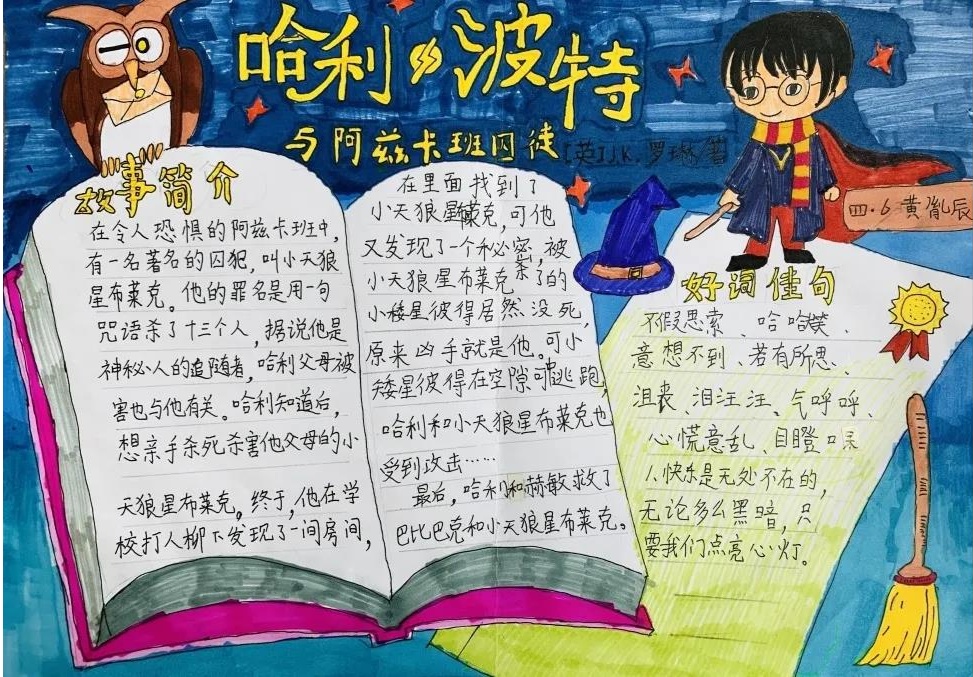 哈利·波特
与阿兹卡班囚徒
[英]J.K.罗琳/著
四·6 黄胤辰
故事简介
在令人恐惧的阿兹卡班中,
有一名著名的囚犯,叫小天狼
星布莱克。他的罪名是用一句
咒语杀了十三个人,据说他是
神秘人的追随者,哈利父母被
害也与他有关。哈利知道后,
想亲手杀死杀害他父母的小
天狼星布莱克。终于,他在学
校打人柳下发现了一间房间,
在里面找到了
小天狼星布莱克,可他
又发现了一个秘密,被
小天狼星布莱克杀了的
小矮星彼得居然没死,
原来凶手就是他。可小
矮星彼得在空隙中逃跑,
哈利和小天狼星布莱克也
受到攻击……
最后,哈利和赫敏救了
巴比巴克和小天狼星布莱克。
好词佳句
不假思索、哈哈大笑、
意想不到、若有所思、
沮丧、泪汪汪、气呼呼、
心慌意乱、目瞪口呆
人快乐是无处不在的,
无论多么黑暗,只
要我们点亮心灯。